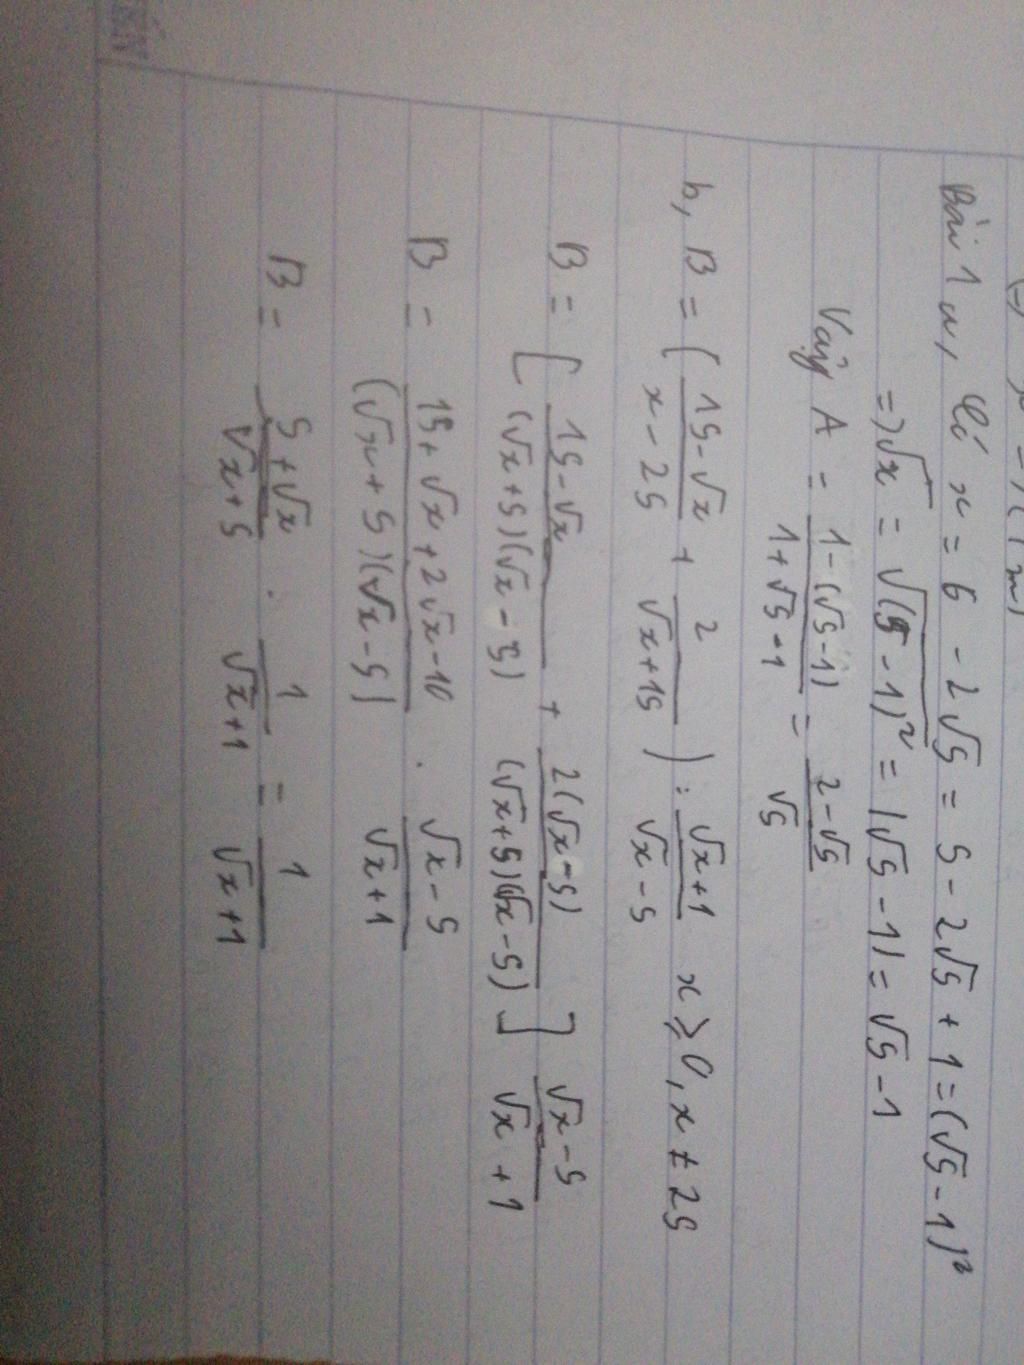 Bài 1 a, Có x = 6 - 2√5 = 5 - 2√5 + 1 = (√5 - 1)²
=> √x = √(5 - 1)² = |√5 - 1| = √5 - 1
Vậy A = 1 - (√5 - 1) / 1 + √5 - 1 = 2 - √5 / √5
b, B = ( 15 - √x / x - 25 + 2 / √x + 15 ) : √x + 1 / √x - 5 x ⩾ 0, x ≠ 25
B = [ 15 - √x / (√x + 5)(√x - 5) + 2(√x - 5) / (√x + 5)(√x - 5) ] √x - 5 / √x + 1
B = 15 + √x + 2√x - 10 / (√x + 5)(√x - 5) . √x - 5 / √x + 1
B = 5 + √x / √x + 5 . 1 / √x + 1 = 1 / √x + 1